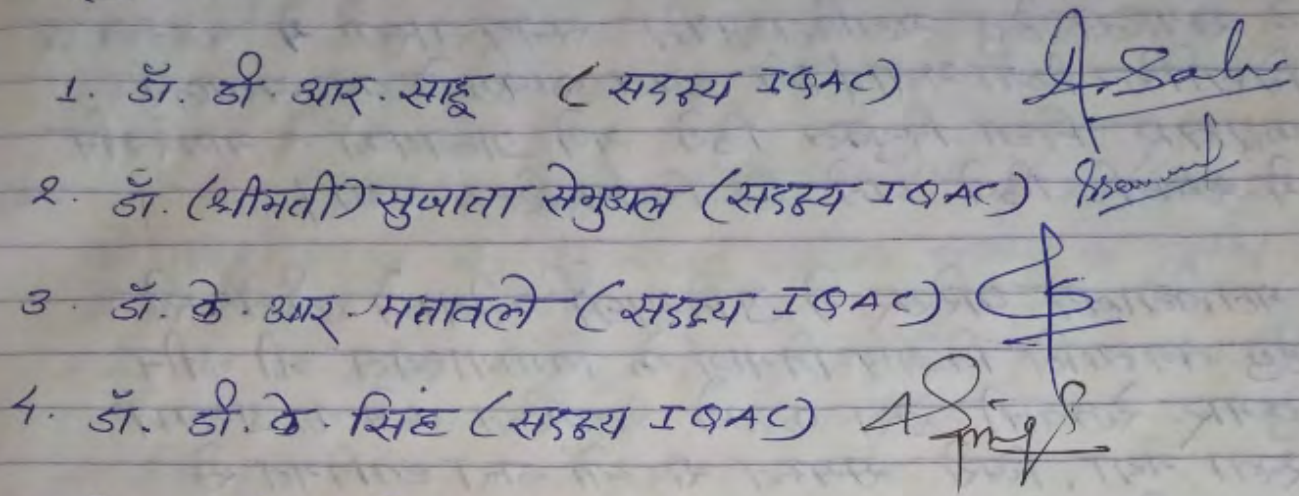 1. डॉ. डी. आर. साहू (सदस्य IQAC)
2. डॉ. (श्रीमती) सुजाता सेमुअल (सदस्य IQAC)
3. डॉ. के. आर. मतावले (सदस्य IQAC)
4. डॉ. डी. के. सिंह (सदस्य IQAC)